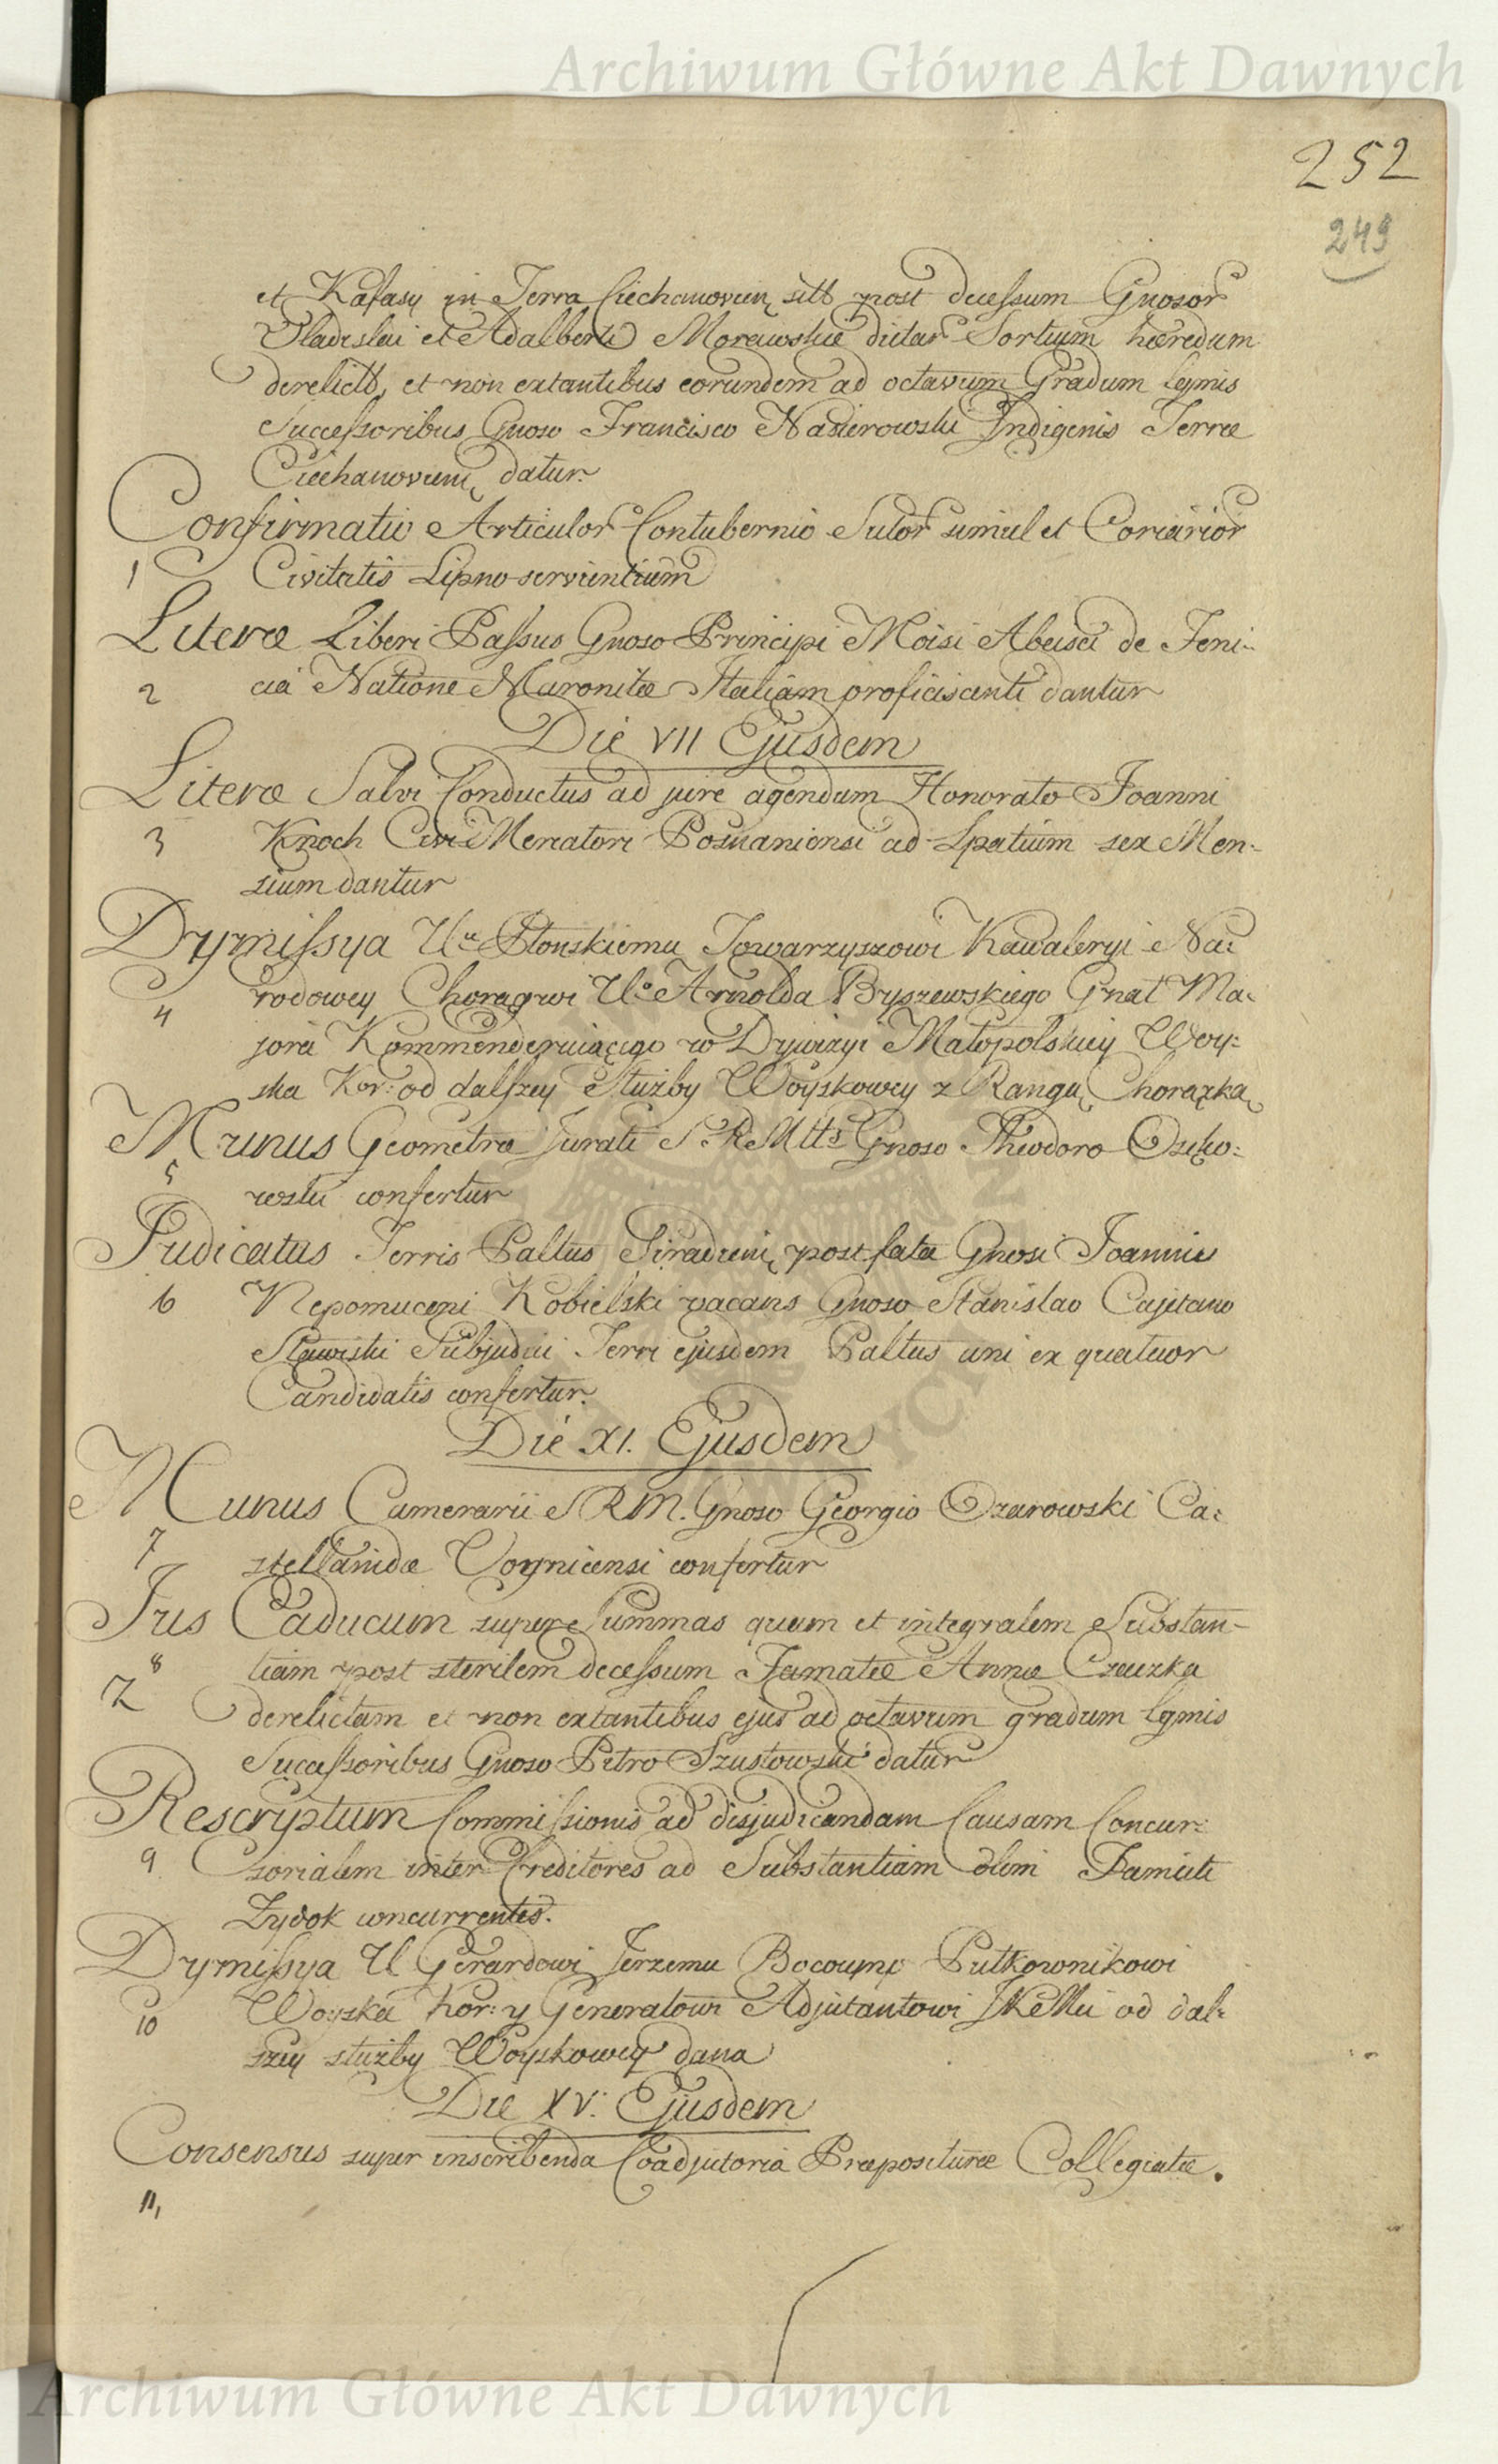 Archiwum Główne Akt Dawnych
252
249
et Kafasy in Terra Ciechanovien, sitt post decessum Gnosor
Vladislai et Adalberti Morawskie dictar Sortium hæredum
derelictt, et non extantibus eorundem ad octavum Gradum lgmis
Successoribus Gnoso Francisco Nasierowski Indigenis Terræ
Ciechanovieni, datur.
Confirmatio Articulor Contubernio Sutor simul et Coriarior
1 Civitatis Lipno servientium
Literæ Liberi Passus Gnoso Principi Moisi Abeisci de Feni-
2 cia Natione Maronitæ Italiam proficiscenti dantur
Die VII Ejusdem
Literæ Salvi Conductus ad jure agendum Honorato Joanni
3 Knoch Civi Mercatori Posnaniensi ad Spatium sex Men-
sium dantur
Dymissya Ur Płonskiemu Towarzyszowi Kawaleryi Na:
4 rodowey Chorągwi Uo Arnolda Byszewskiego Gnał Ma-
jora Kommenderuiącego w Dywizyi Małopolskiey Woy:
ska Kor: od dalszey Służby Woyskowey z Rangą Chorążka,
Munus Geometræ Jurati S. R. Mtts Gnoso Theodoro
5 confertur
Judicatus Terris Paltus Siradieni, post fata Gnosi Joannis
6 Nepomuceni Kobielski vacans Gnoso Stanislao Cajetano
Stawiski Subjudici Terri ejusdem Paltus uni ex quatuor
Candidatis confertur.
Die XI. Ejusdem
Munus Camerarii S R M. Gnoso Georgio Ozarowski Ca:
7 stellanidæ Voynicensi confertur
Jus Caducum super Summas quam et integralem Substan-
8 tiam post sterilem decessum Famatæ Annæ Czauzka
Z derelictam et non extantibus ejus ad octavum gradum lgmis
Successoribus Gnoso Petro Szustowski datur
Rescryptum Commissionis ad disjudicandam Causam Concur:
9 sorialem inter Creditores ad Substantiam olim Famati
Zydok concurrentes.
Dymissya U Gerardowi Jerzemu Pułkownikowi
10 Woyska Kor: y Generałowi Adjutantowi JKMci od dal-
szey służby Woyskowey dana
Die XV. Ejusdem
Consensus super inscribenda Coadjutoria Præposituræ Collegiatæ.
11,
Archiwum Główne Akt Dawnych